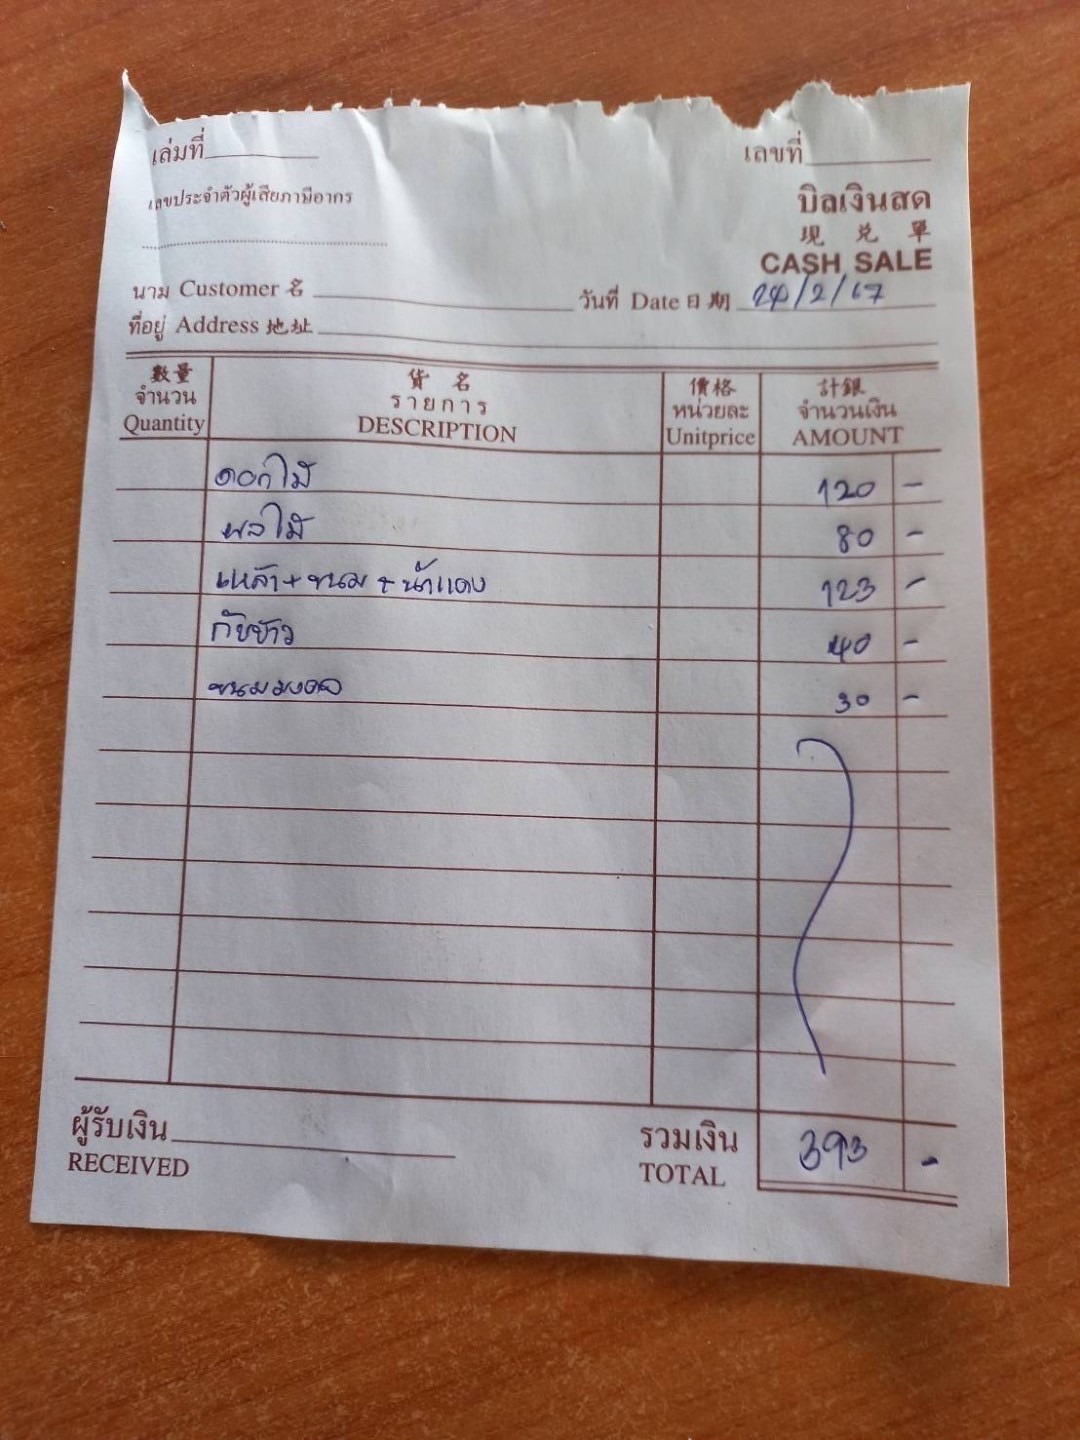 เล่มที่ เลขที่
เลขประจำตัวผู้เสียภาษีอากร
บิลเงินสด
現 兌 單
CASH SALE
นาม Customer 名 วันที่ Date 日期 24/2/67
ที่อยู่ Address 地址
數量 貨 名 價格 計銀
จำนวน รายการ หน่วยละ จำนวนเงิน
Quantity DESCRIPTION Unitprice AMOUNT
ดอกไม้ 120 -
ผลไม้ 80 -
เหล้า + ขนม + น้ำแดง 123 -
กับข้าว 40 -
ขนมมงคล 30 -
ผู้รับเงิน รวมเงิน 393 -
RECEIVED TOTAL